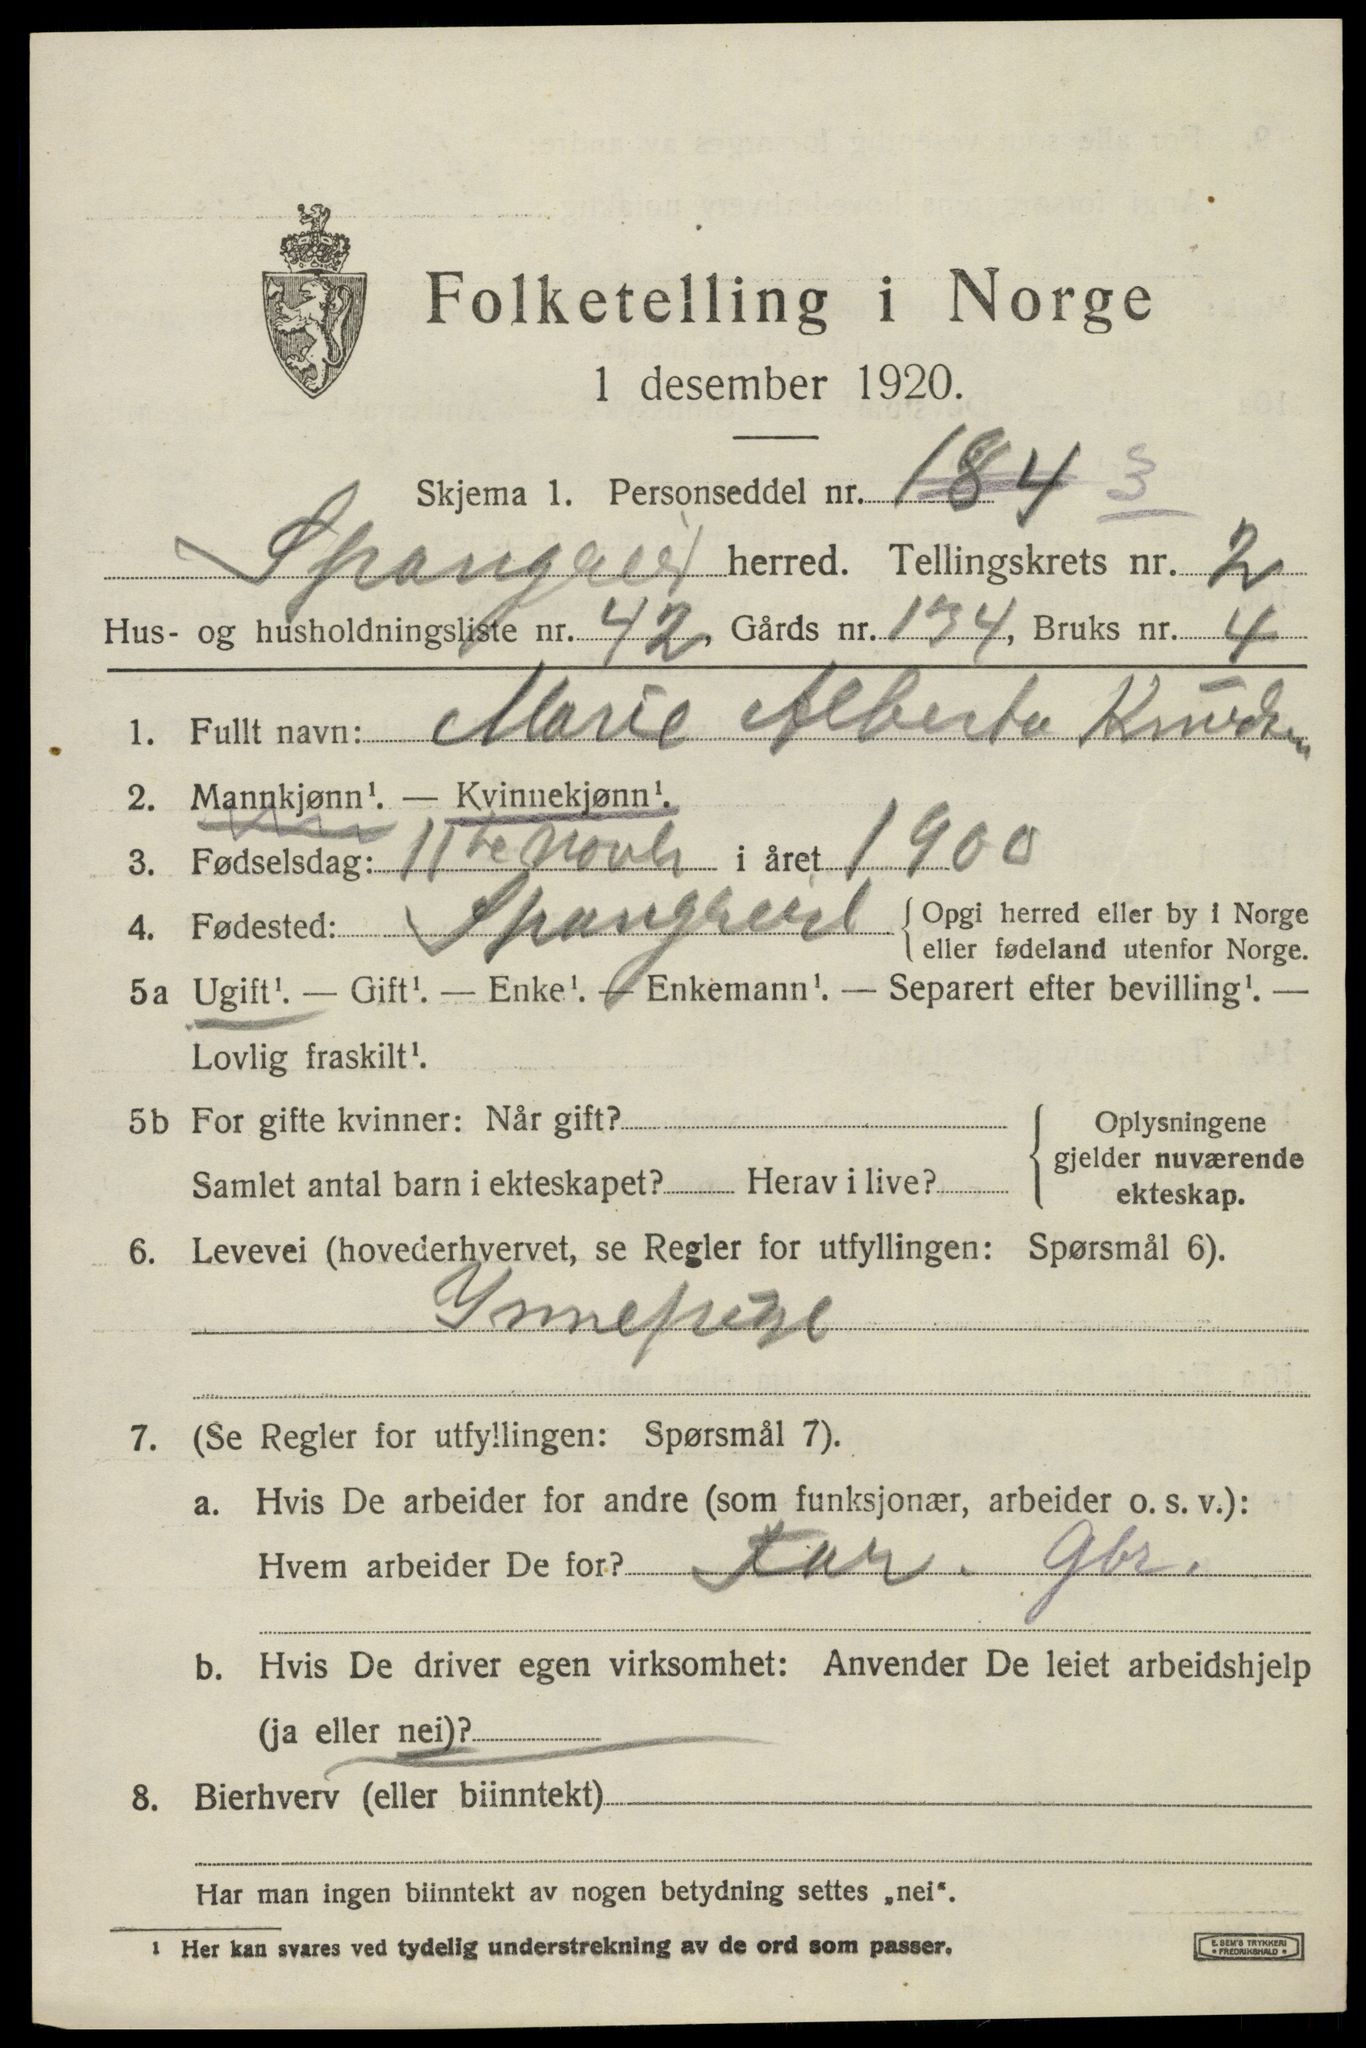 Folketelling i Norge
1 desember 1920.
Skjema 1. Personseddel nr. 184 3
Spangereid herred. Tellingskrets nr. 2
Hus- og husholdningsliste nr. 42, Gårds nr. 134, Bruks nr. 4
1. Fullt navn: Marie Alberta Knudsen
2. Mannkjønn¹. — Kvinnekjønn¹.
3. Fødselsdag: 11te Novb i året 1900
4. Fødested: Spangreid { Opgi herred eller by i Norge
eller fødeland utenfor Norge.
5a Ugift¹. — Gift¹. — Enke¹. — Enkemann¹. — Separert efter bevilling¹. —
Lovlig fraskilt¹.
5b For gifte kvinner: Når gift? { Oplysningene
gjelder nuværende
Samlet antal barn i ekteskapet? Herav i live? ekteskap.
6. Levevei (hovederhvervet, se Regler for utfyllingen: Spørsmål 6).
Innepige
7. (Se Regler for utfyllingen: Spørsmål 7).
a. Hvis De arbeider for andre (som funksjonær, arbeider o. s. v.):
Hvem arbeider De for? Far. Gbr.
b. Hvis De driver egen virksomhet: Anvender De leiet arbeidshjelp
(ja eller nei)?
8. Bierhverv (eller biinntekt)
Har man ingen biinntekt av nogen betydning settes „nei“.
¹ Her kan svares ved tydelig understrekning av de ord som passer.
E. SEM'S TRYKKERI
• FREDRIKSHALD •